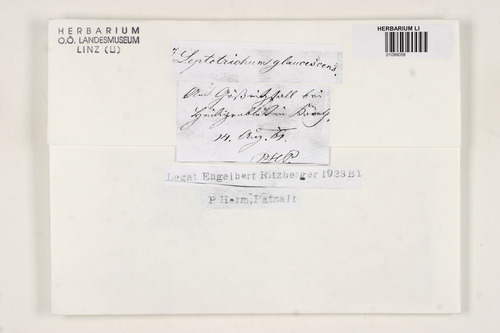 HERBARIUM
O.Ö. LANDESMUSEUM
LINZ (LI)
HERBARIUM LI
Leptotrichum glaucescens.
Am Gößnitzfall bei
Heiligenblut in Kärnth.
14. Aug.
Legat Engelbert Ritzberger 1923 B1
P Herm. Patzalt.